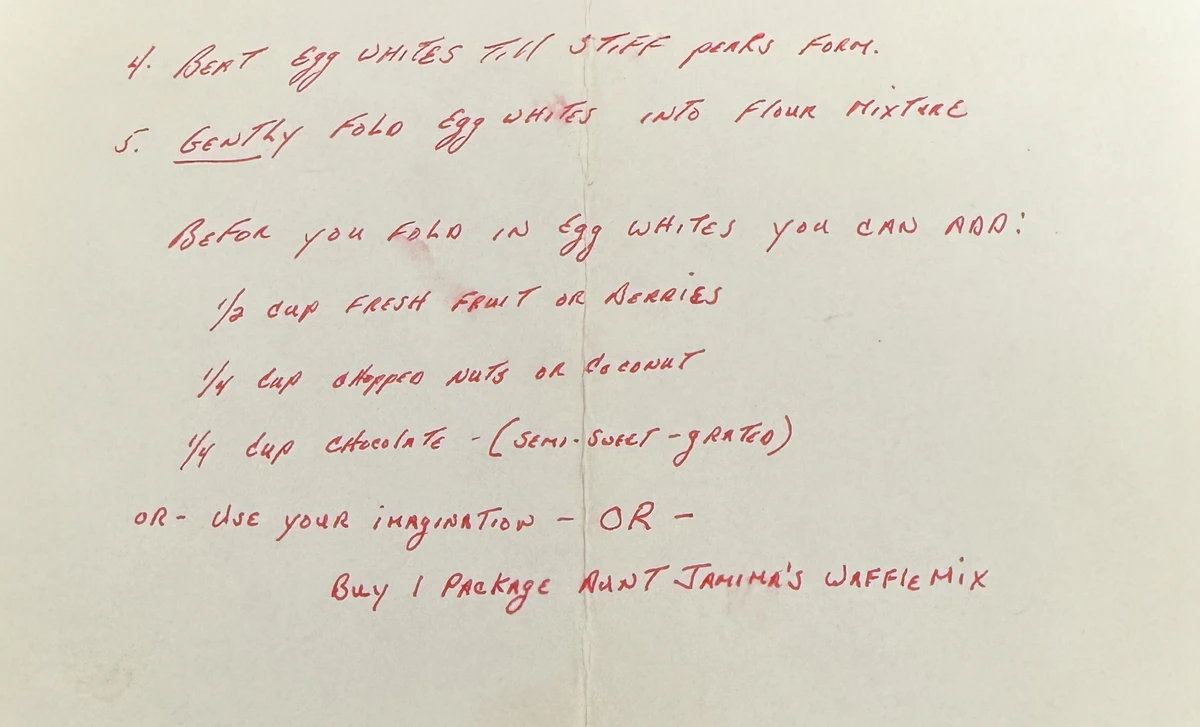 4. BEAT Egg WHITES Till STIFF PEAKS FORM.
5. GENTLY FOLD Egg WHITES INTO FLOUR MIXTURE
BEFOR YOU FOLD IN Egg WHITES YOU CAN ADD:
1/2 CUP FRESH FRUIT OR BERRIES
1/4 CUP CHOPPED NUTS OR COCONUT
1/4 CUP CHOCOLATE - (SEMI-SWEET - GRATED)
OR - USE YOUR IMAGINATION - OR -
BUY 1 PACKAGE AUNT JAMIMA'S WAFFLE MIX